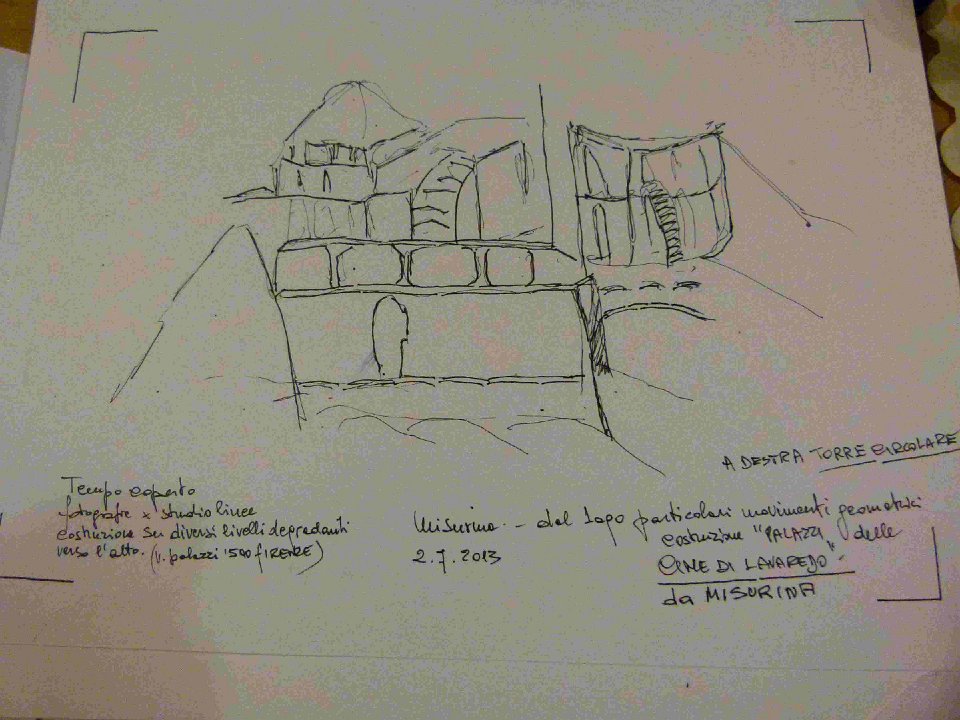 A DESTRA TORRE CIRCOLARE
Tempo coperto
fotografie x studio linee
costruzione su diversi livelli degradanti
verso l'alto. (v. palazzi '500 FIRENZE)
Misurina - dal lago particolari movimenti geometrici
2.7.2013
costruzione "PALAZZI" delle
CIME DI LAVAREDO"
da MISURINA